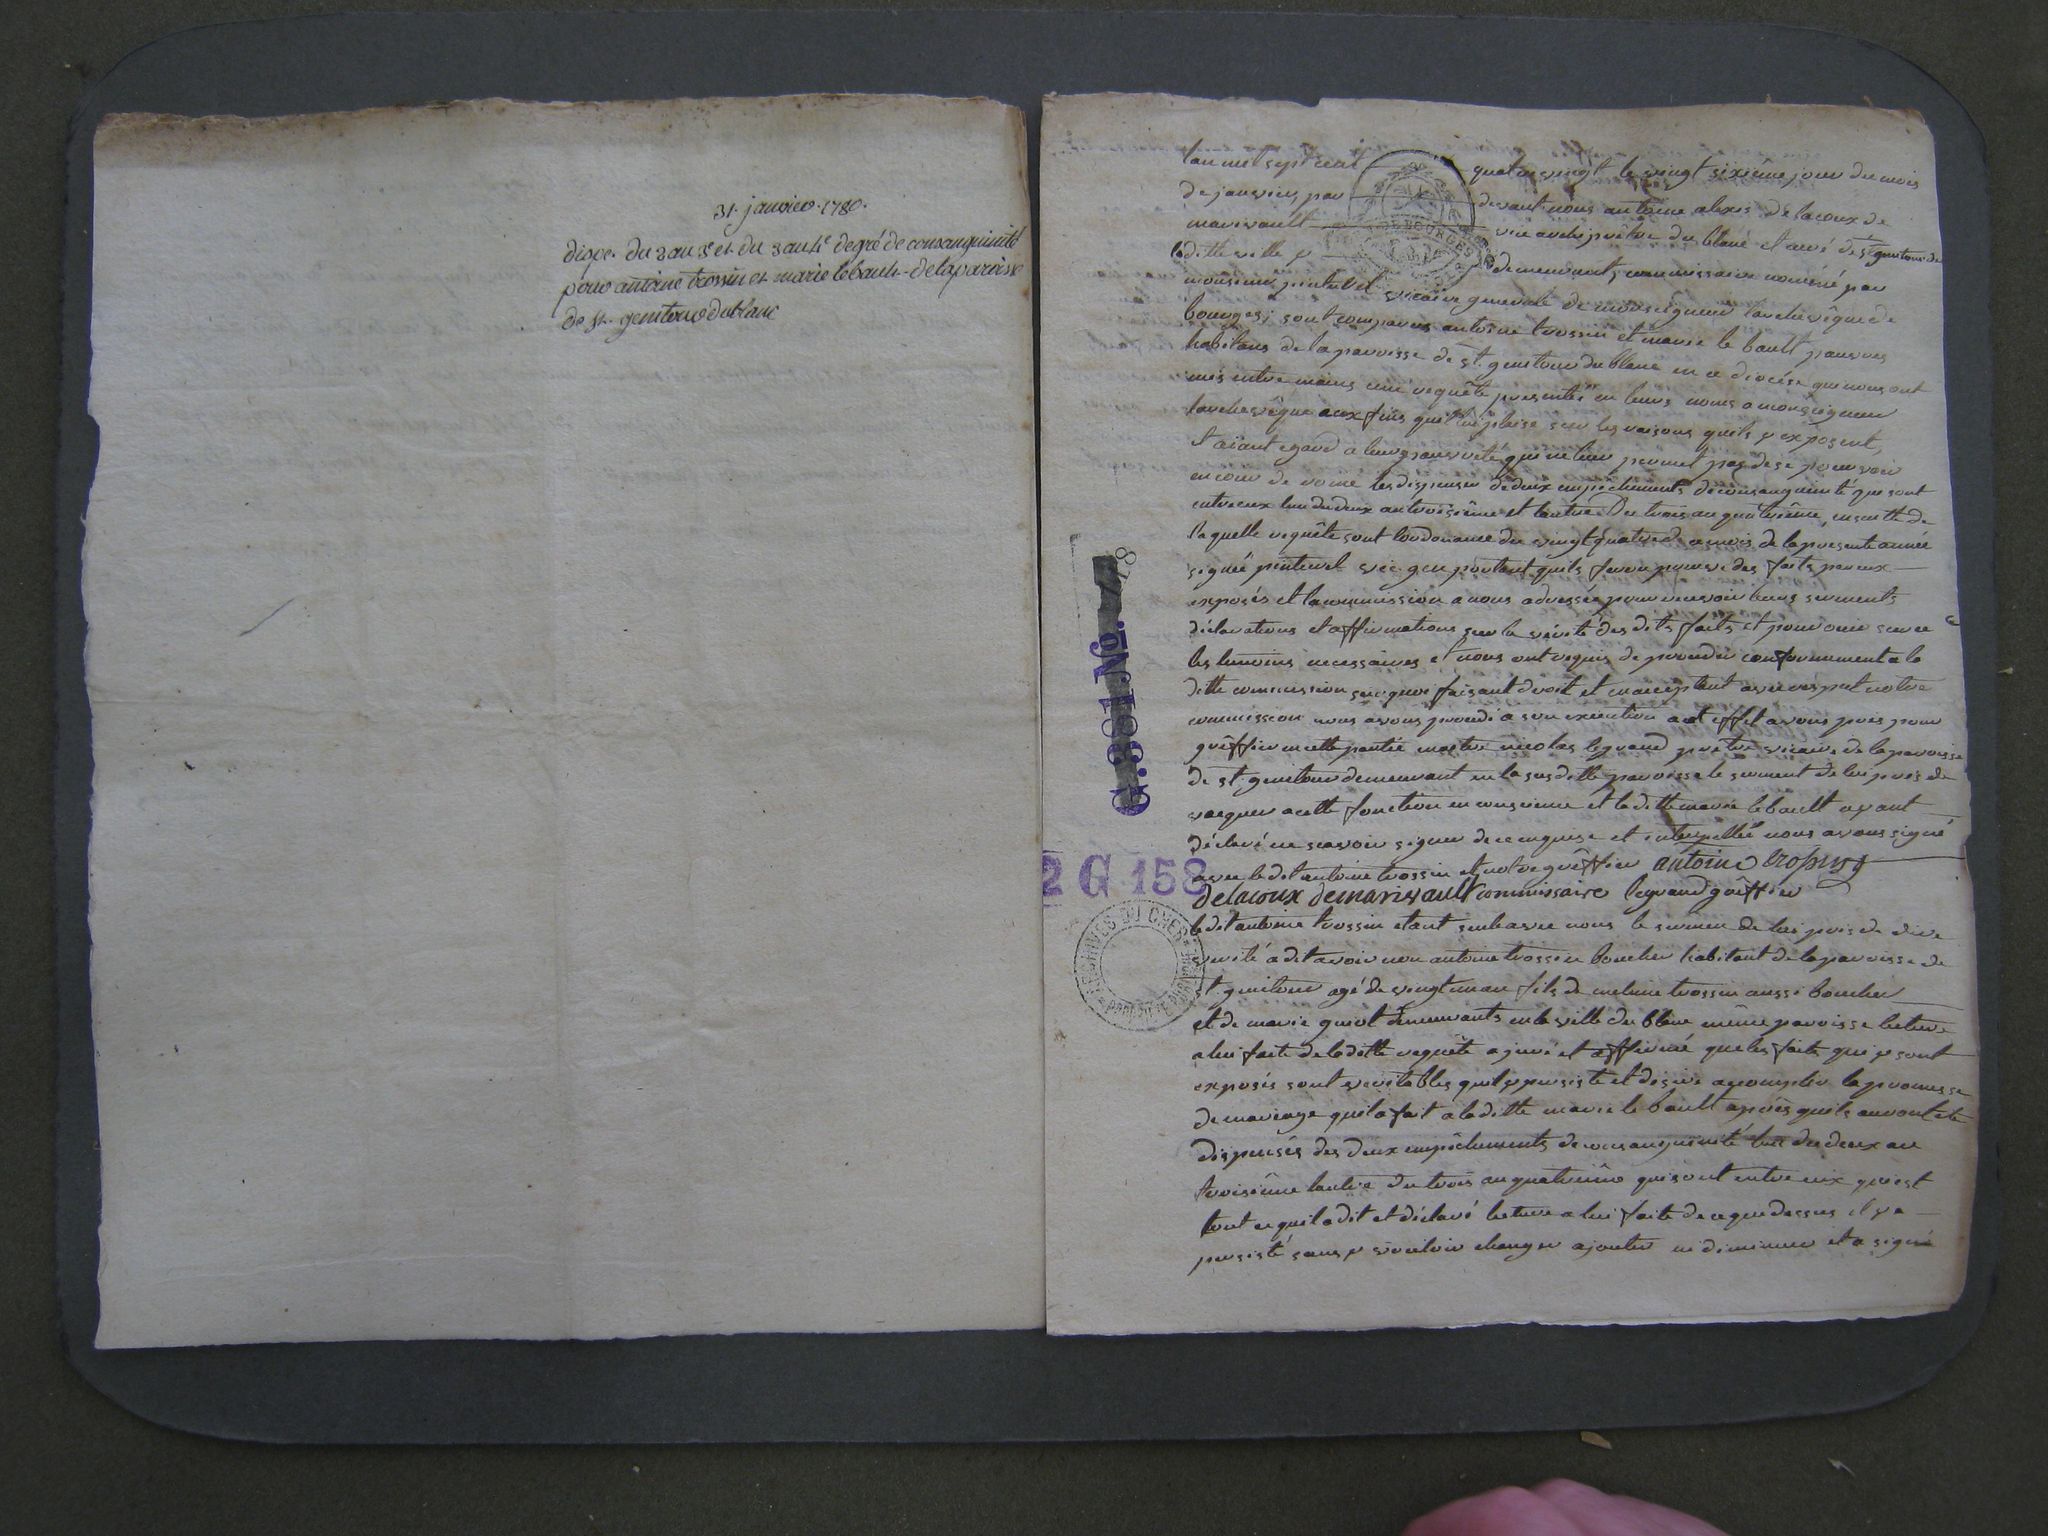 31. janvier. 1780.
dispe. du 2 au 3e et du 3 au 4e degré de consanguinité
pour antoine trossin et marie lebault - de la paroisse
de st. genitour du blanc
lan mil sept cent quatre vingt le vingt sixième jour du mois
de janvier, par devant nous antoine alexis de lacoux de
marivault vic archiprêtre du blanc et curé de st genitour de
laditte ville y demeurant, commissaire nommé par
monsieur vicaire general de monseigneur larchevêque de
bourges; sont comparus antoine trossin et marie le bault pauvres
habitans de la paroisse de st. genitour du blanc en ce diocése qui nous ont
mis entre mains une requête presentée en leurs noms a monseigneur
larchevêque aux fins quil lui plaise sur les raisons quils y exposent,
et aïant egard a leur pauvreté qui ne leur permet pas de se pourvoir
en cour de rome les dispenser de deux empêchements de consanguinité qui sont
entre eux lun du deux au troisième et lautre du trois au quatrième, ensuitte de
laquelle requête sont lordonnance du vingt quatre de ce mois de la presente année
signée vic. gen portant quils feront preuve des faits par eux
exposés et la commission a nous adressée pour recevoir leurs serments
déclarations et affirmations sur la vérité des dits faits et pour ouir sur ce
les temoins necessaires et nous ont requis de proceder conformement a la
ditte commission surquoi faisant droit et acceptant avec respect notre
commission nous avons procedé a son execution a cet effet avons pris pour
gréffier en cette partie maitre nicolas legrand prêtre vicaire de la paroisse
de st. genitour demeurant en la susditte paroisse le serment de lui pris de
vacquer a cette fonction en conscience et laditte marie lebault ayant
déclaré ne scavoir signer de ce enquise et interpellée nous avons signé
avec ledit antoine trossin et notre gréffier antoine trossin
delacoux demarivault commissaire legrand gréffier
ledit antoine trossin etant seul avec nous le serment de lui pris de dire
verité a dit avoir nom antoine trossin boucher habitant de la paroisse de
st. genitour agé de vingt un an fils de trossin aussi boucher
et de marie guiot demeurants en la ville du blanc même paroisse lecture
a lui faite de laditte requête a juré et affirmé que les faits qui y sont
exposés sont veritables quil y persiste et desire accomplir la promesse
de mariage quil a fait a laditte marie le bault aprés quils auront eté
dispensés des deux empêchements de consanguinité lun du deux au
troisiéme lautre du trois au quatriéme qui sont entre eux qui est
tout ce quil a dit et déclaré lecture a lui faite de ce que dessus il y a
persisté sans y vouloir changer ajouter ni diminuer et a signé
G. 381 No. 18
2 G 158
ARCHIVES DU CHER